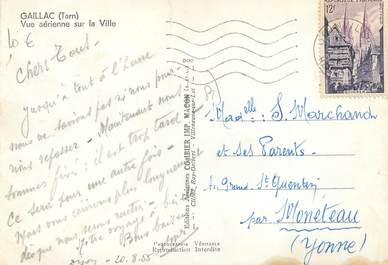 GAILLAC (Tarn)
Vue aérienne sur la Ville
10 €
Chers Tous.
Jusqu'à tout à l'heure
nous ne savions pas si nous pour-
nous repasser. Maintenant nous
sommes fixés : il est trop tard.
Ce sera pour une autre fois.
Nous vous écrirons plus longuement
dès que nous serons rentrés.
votre voyage. Bons baisers
20.8.55
Editions Modernes COMBIER IMP. MACON
Photographie Véritable
Reproduction Interdite
12F
Mad^elle S. Marchand
et ses Parents.
au Grand St Quentin
par MONETEAU
(Yonne)